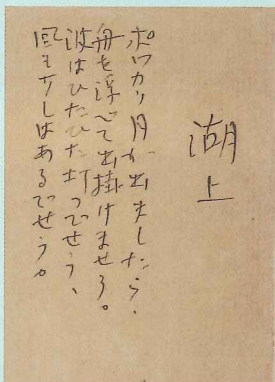 湖上
ポッカリ月が出ましたら、
舟を浮べて出掛けませう。
波はひたひた打つでせう、
風も少しはあるでせう。